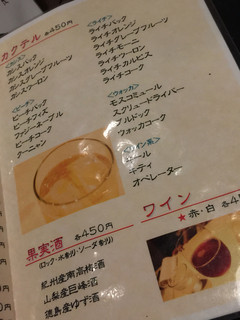 カクテル 各450円
<カシス>
カシスバック
カシスオレンジ
カシスグレープフルーツ
カシスウーロン
<ピーチ>
ピーチバック
ピーチフィズ
ファジーネーブル
ピーチコーク
クーニャン
<ライチ>
ライチバック
ライチオレンジ
ライチグレープフルーツ
ライチモーニ
ライチウーロン
ライチカルピス
ライチコーク
<ウォッカ>
モスコミュール
スクリュードライバー
ブルドック
ウォッカコーク
オペレーター
果実酒 各450円
(ロック・水割り・ソーダ割り)
紀州産南高梅酒
山梨産巨峰酒
徳島産ゆず酒
ワイン
★赤・白 各4